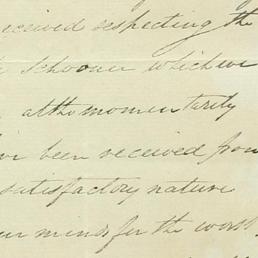 received respecting the
schooner which we
at the momentarily
been received from
satisfactory nature
our minds for the worst